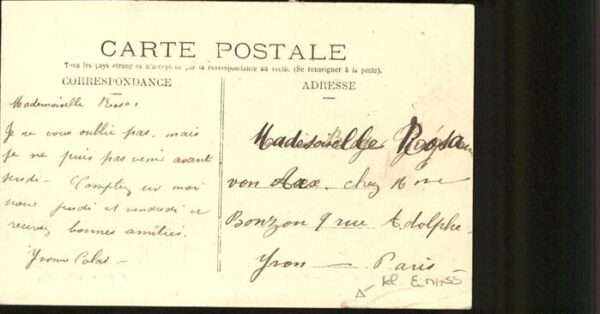 CARTE POSTALE
Tous les pays étrangers n'acceptent pas la correspondance au verso. (Se renseigner à la poste).
CORRESPONDANCE
ADRESSE
Mademoiselle Rosa.
Je ne vous oublie pas. mais
je ne puis pas venir avant
jeudi. Comptez sur moi
pour jeudi et vendredi et
recevez bonnes amitiés.
Yvonne
Mademoiselle Rosa
von chez Mme
Bonzon 9 rue Adolphe
Yvon — Paris